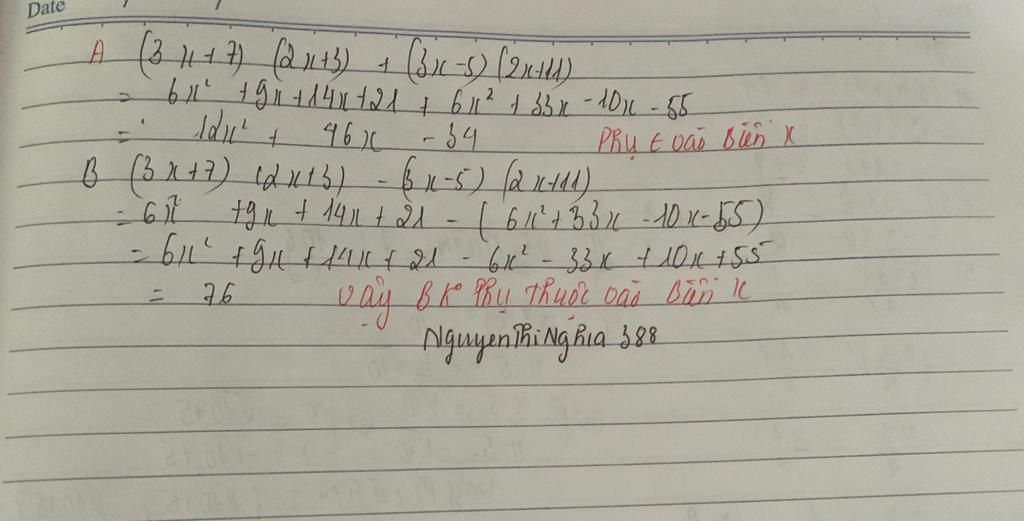 Date
A (3x+7) (2x+3) + (3x-5) (2x+11)
= 6x² + 9x + 14x + 21 + 6x² + 33x - 10x - 55
= 12x² + 46x - 34 Phụ t vào Biến x
B (3x+7) (2x+3) - (3x-5) (2x+11)
= 6x² + 9x + 14x + 21 - ( 6x² + 33x - 10x - 55)
= 6x² + 9x + 14x + 21 - 6x² - 33x + 10x + 55
= 76 Vậy B Ko Phụ Thuộc vào Biến x
NguyenThiNghia 388